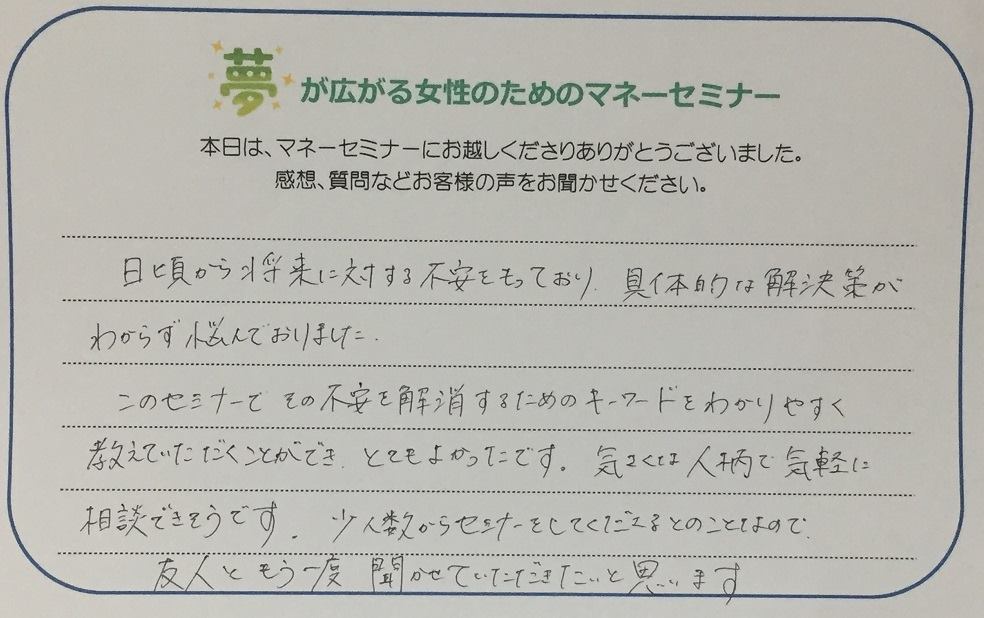 夢が広がる女性のためのマネーセミナー
本日は、マネーセミナーにお越しくださりありがとうございました。
感想、質問などお客様の声をお聞かせください。
日頃から将来に対する不安をもっており、具体的な解決策が
わからず悩んでおりました。
このセミナーでその不安を解消するためのキーワードをわかりやすく
教えていただくことができ、とてもよかったです。気さくな人柄で気軽に
相談できそうです。少人数からセミナーをしてくださるとのことなので、
友人ともう一度聞かせていただきたいと思います